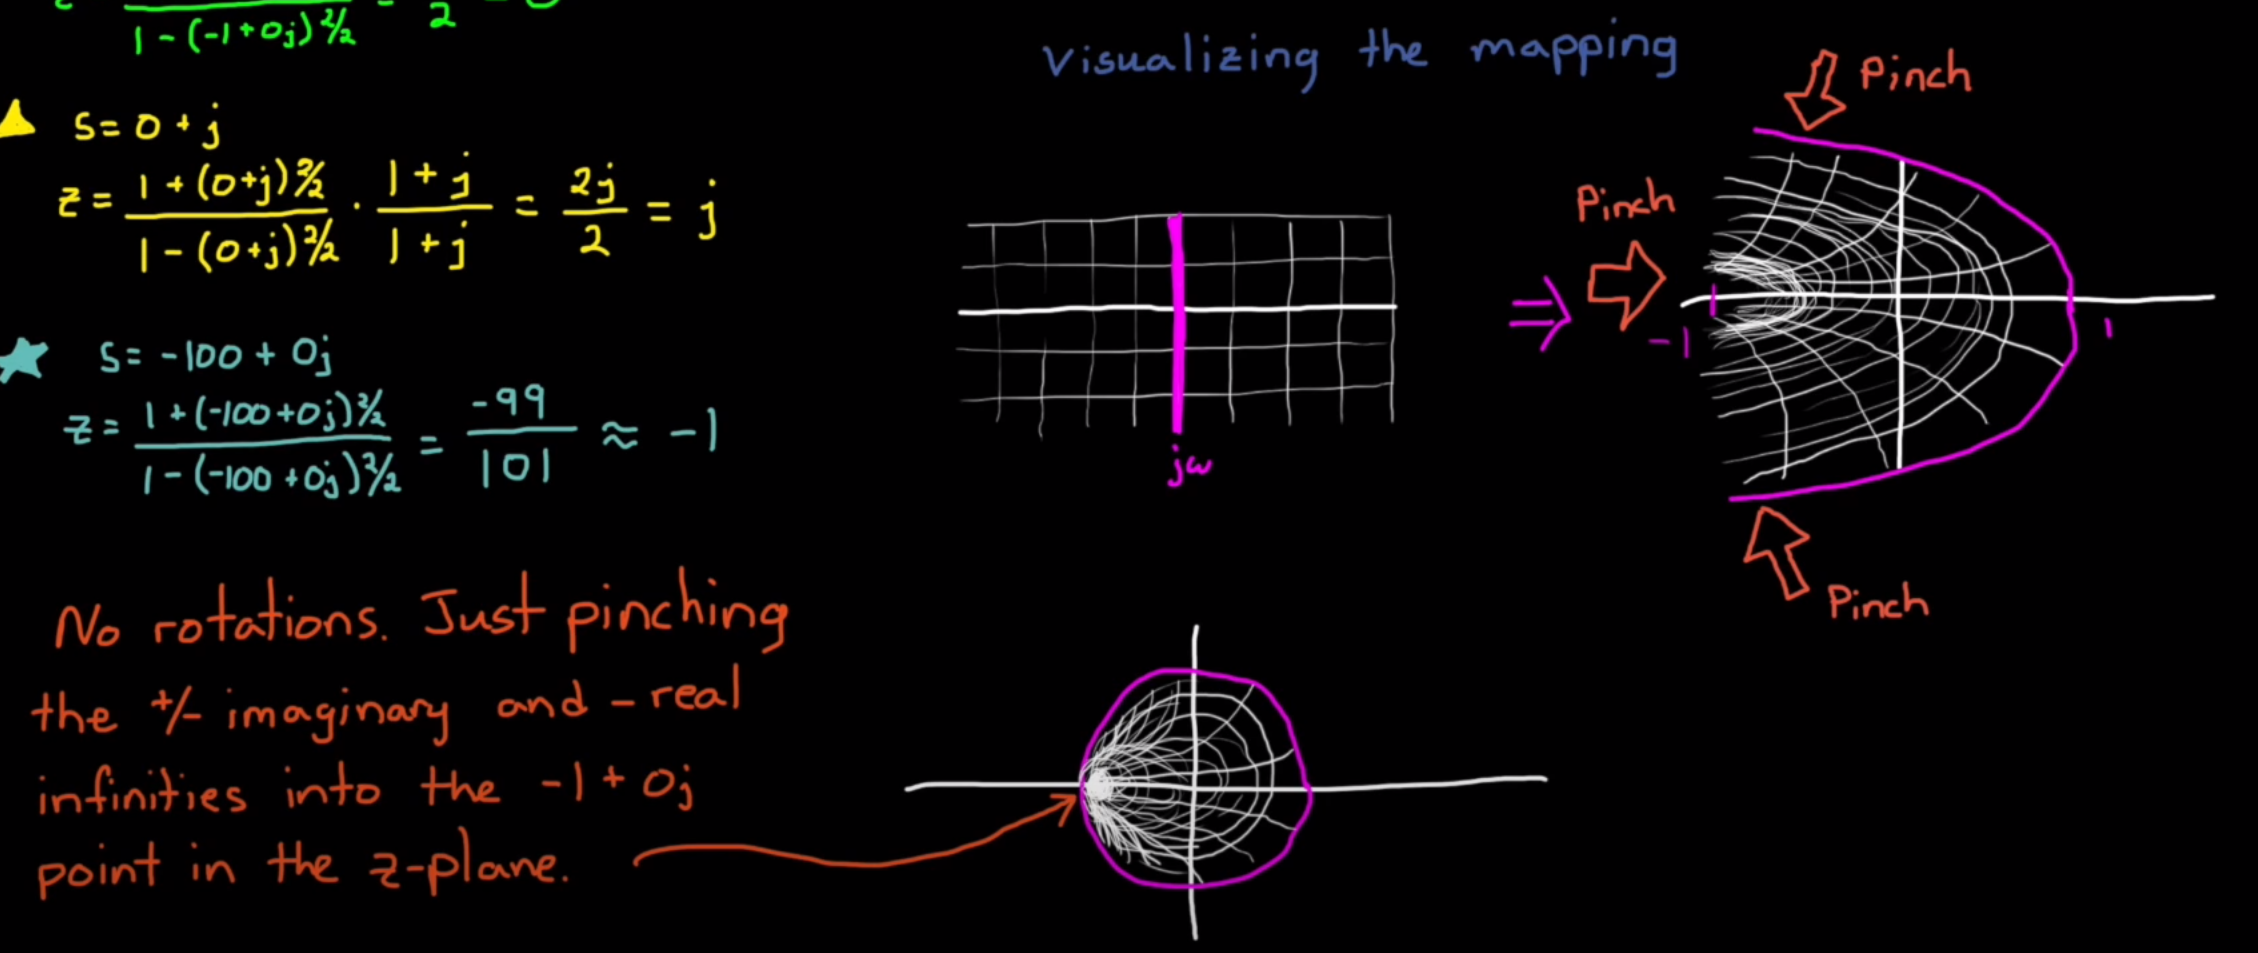 1 - (-1+0j) 2/2 = 2
s = 0 + j
z = (1 + (0+j) 2/2) / (1 - (0+j) 2/2) · (1 + j) / (1 + j) = 2j / 2 = j
s = -100 + 0j
z = (1 + (-100+0j) 2/2) / (1 - (-100+0j) 2/2) = -99 / 101 ≈ -1
No rotations. Just pinching
the +/- imaginary and - real
infinities into the -1 + 0j
point in the z-plane.
Visualizing the mapping
jω
⇒
Pinch
Pinch
-1
1
Pinch